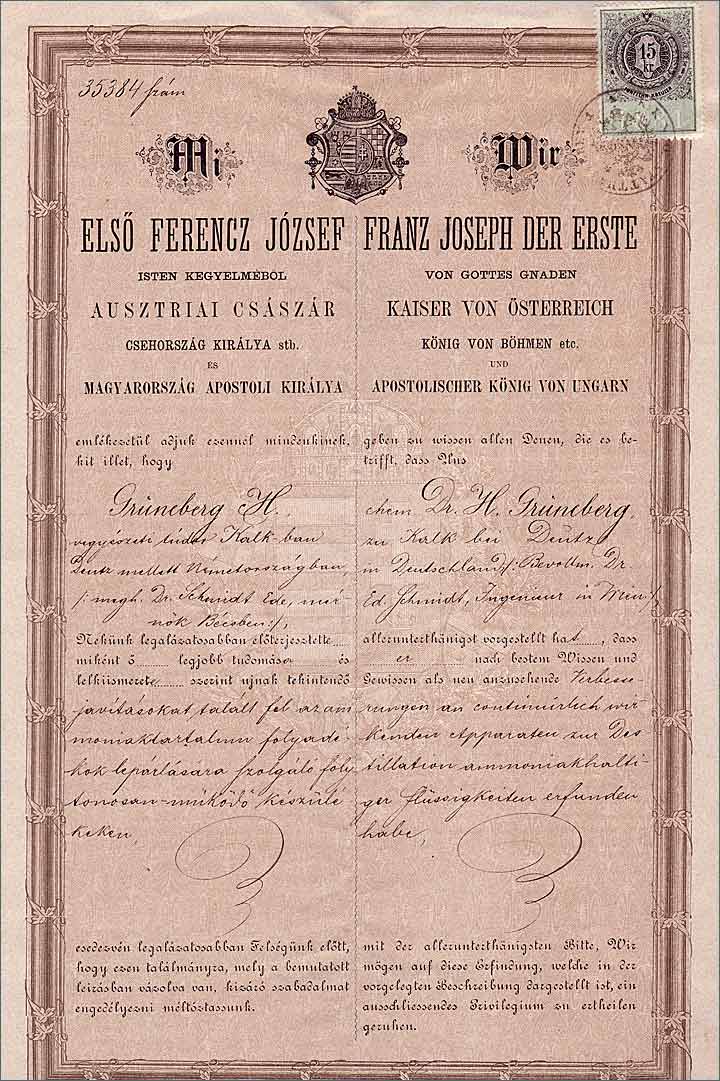 35384 szám
15
kr.
Mi
ELSŐ FERENCZ JÓZSEF
ISTEN KEGYELMÉBŐL
AUSZTRIAI CSÁSZÁR
CSEHORSZÁG KIRÁLYA stb.
ÉS
MAGYARORSZÁG APOSTOLI KIRÁLYA
emlékezetül adjuk ezennel mindenkinek,
kit illet, hogy
Grüneberg H.,
vegyészeti tudor Kalk-ban
Deutz mellett Németországban,
/: megh. Dr. Schmidt Ede, mér
nök Bécsben :/,
Nékünk legalázatosabban előterjesztette
miként ő legjobb tudomása és
lelkiismerete szerint ujnak tekintendő
javításokat talált fel az am
moniaktartalmu folyadé
kok lepárlására szolgáló foly
tonosan-működő készülé
keken,
esedezvén legalázatosabban Felségünk előtt,
hogy ezen találmányra, mely a bemutatott
leirásban vázolva van, kizáró szabadalmat
engedélyezni méltóztassunk.
Wir
FRANZ JOSEPH DER ERSTE
VON GOTTES GNADEN
KAISER VON ÖSTERREICH
KÖNIG VON BÖHMEN etc.
UND
APOSTOLISCHER KÖNIG VON UNGARN
geben zu wissen allen Denen, die es be-
trifft, dass Uns
chem Dr. H. Grüneberg,
zu Kalk bei Deutz
in Deutschland /: Bevollm. Dr
Ed. Schmidt, Ingenieur in Wien :/
allerunterthänigst vorgestellt hat, dass
er nach bestem Wissen und
Gewissen als neu anzusehende Verbesse
rungen an continuirlich wir
kenden Apparaten zur Des
tillation ammoniakhalti
ger Flüssigkeiten erfunden
habe,
mit der allerunterthänigsten Bitte, Wir
mögen auf diese Erfindung, welche in der
vorgelegten Beschreibung dargestellt ist, ein
ausschliessendes Privilegium zu ertheilen
geruhen.